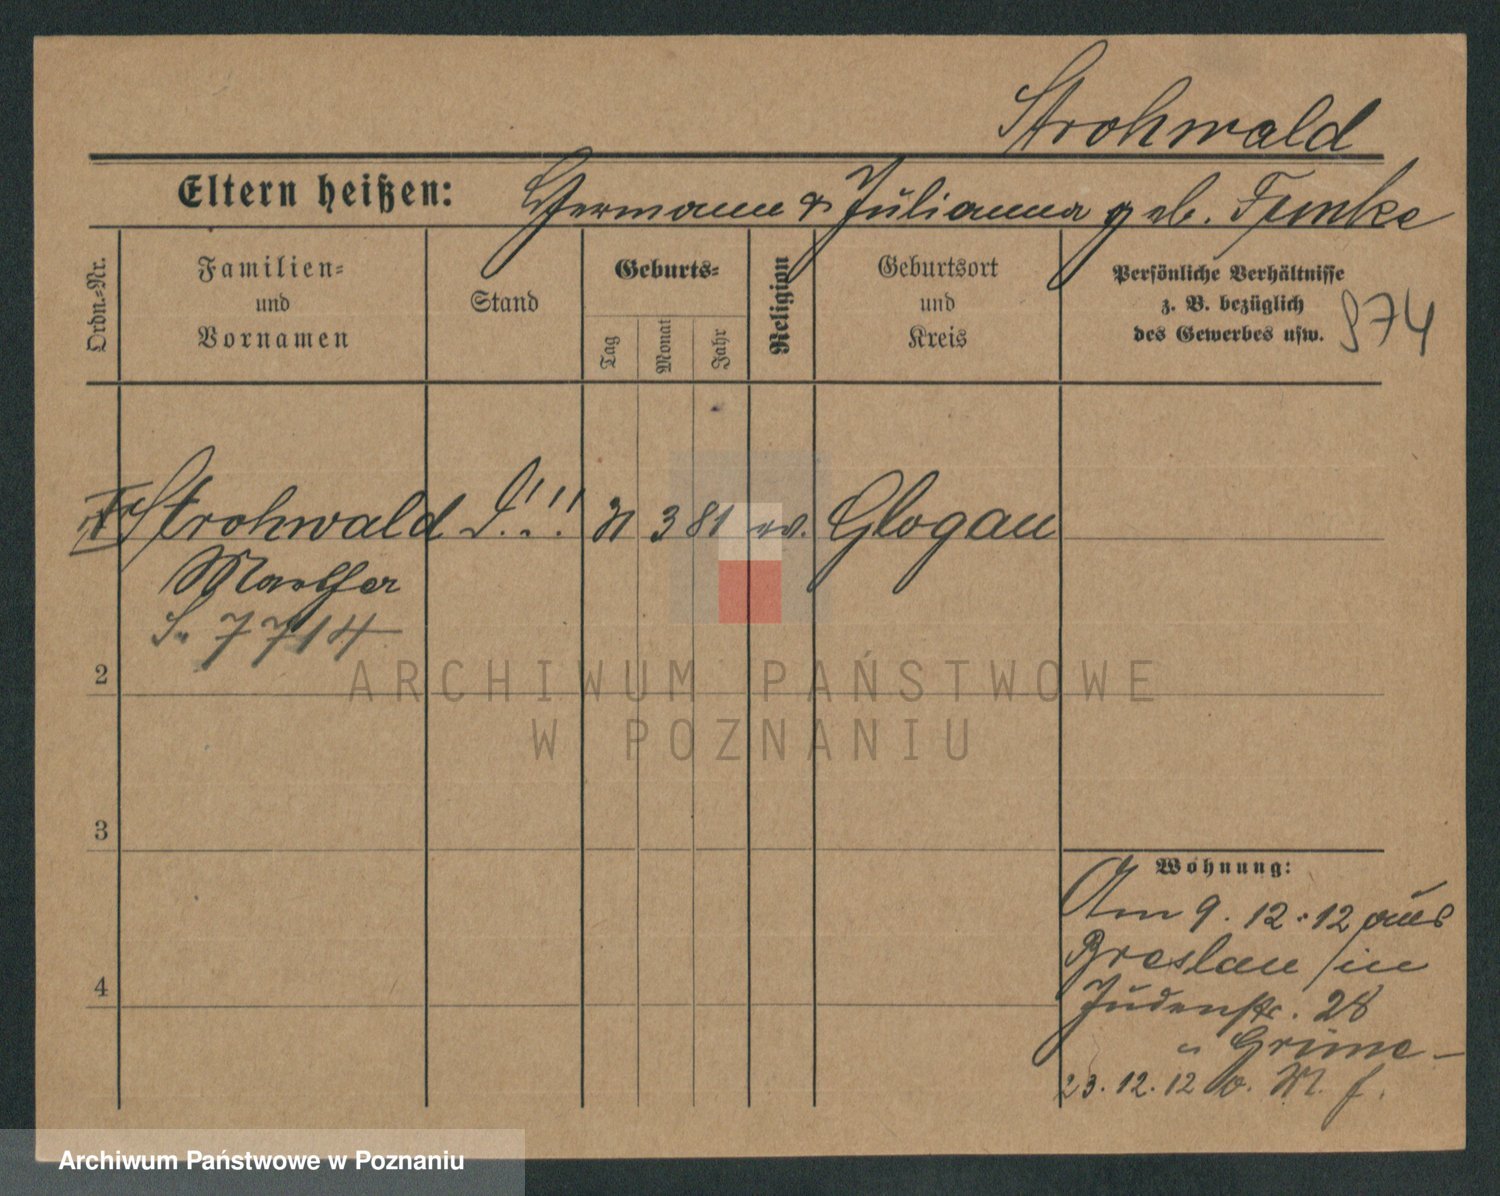 Strohwald
Eltern heißen: Hermann & Julianna geb. Funke
Ordn.-Nr.
Familien- und Vornamen
Stand
Geburts-
Tag
Monat
Jahr
Religion
Geburtsort und Kreis
Persönliche Verhältnisse
z. B. bezüglich
des Gewerbes usw.
974
Strohwald
3 81 ev. Glogau
Martha
S. 7714
2
3
4
Wohnung:
Am 9.12.12 aus
Breslau / in
Judenstr. 28
23.12.12 o. M. f.
ARCHIWUM PAŃSTWOWE
W POZNANIU
Archiwum Państwowe w Poznaniu